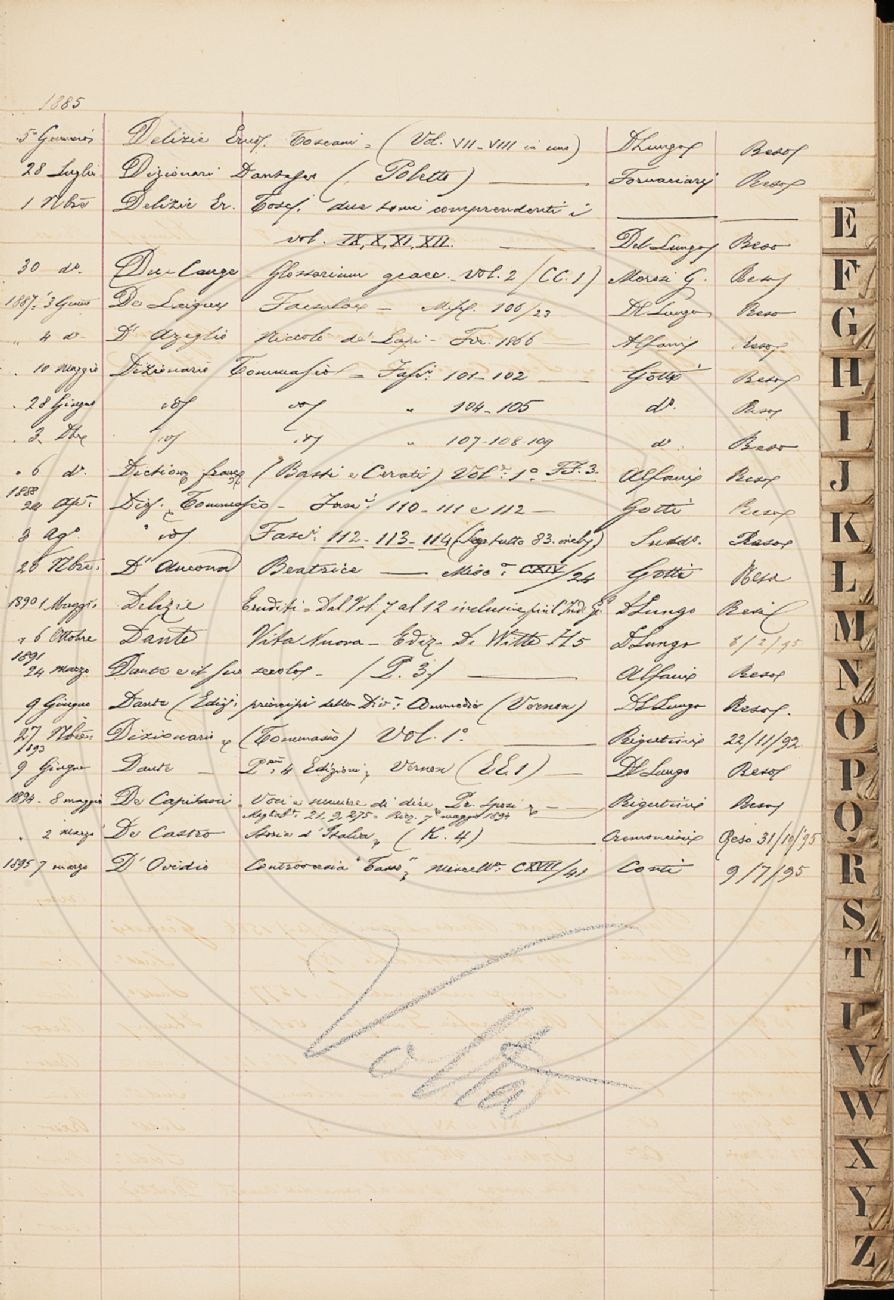 1885
5 Gennaio Delizie Erud. Toscani = (Vol. VII-VIII in uno) DLungo Reso
28 Luglio Dizionari Dantesco (Poletto) Fornaciari Reso
1 Nbre Delizie Er. Tosc. due tomi comprendenti i
vol. IX, X, XI, XII. Del Lungo Reso
30 do. Du-Cange Glossarium graec. Vol. 2 (CC.1) Morosi G. Reso
1887. 3 Giuno Faesulae Misc. 106/23 Del Lungo Reso
" 4 do D'Azeglio Niccolò de' Lapi - Fir. 1866 Alfani Reso
" 10 Maggio Dizionario Tommaseo = Fasc. 101-102 Gotti Reso
" 28 Giugno id id " 104-105 do. Reso
" 3. Xbre id id " 107-108-109 do. Reso
" 6 do. Diction. franç. (Basti e Cerati) Vol. 1o FF.3. Alfani Reso
1888
24 Apr. Diz. Tommaseo - Fasc. 110-111 e 112 - Gotti Reso
3 Ago. " id Fasc. 112-113-114 Sudo. Reso
26 Nbre. D'Ancona Beatrice Misc. CXIX/24 Gotti Reso
1890 1 Maggio Delizie Eruditi = Dal Vol. 7 al 12 inclusive DLungo Resi
" 6 Ottobre Dante Vita Nuova - Ediz. De Witte H5 DLungo 8/2/95
1891
24 Marzo Dante e il suo secolo - (P. 3) Alfani Reso
9 Giugno Dante (Ediz. principi della Div. Commedia (Vernon) Del Lungo Reso.
27 Nbre Dizionario (Tommaseo) Vol. 1o Rigutini 22/11/92
1893
9 Giugno Dante - Pme 4 Edizioni, Vernon (EE1) - Del Lungo Reso
1894 - 8 maggio De Capitani Voci e maniere di dire Rigutini Reso
7 maggio 1894
" 2 marzo De Castro Storia d'Italia, (K. 4) Cremoncini Reso 31/10/95
1895 7 marzo D'Ovidio Controversia "Tasso" Miscell. CXVII/41 Conti 9/7/95
Volta
E
F
G
H
I
J
K
L
M
N
O
P
Q
R
S
T
U
V
W
X
Y
Z